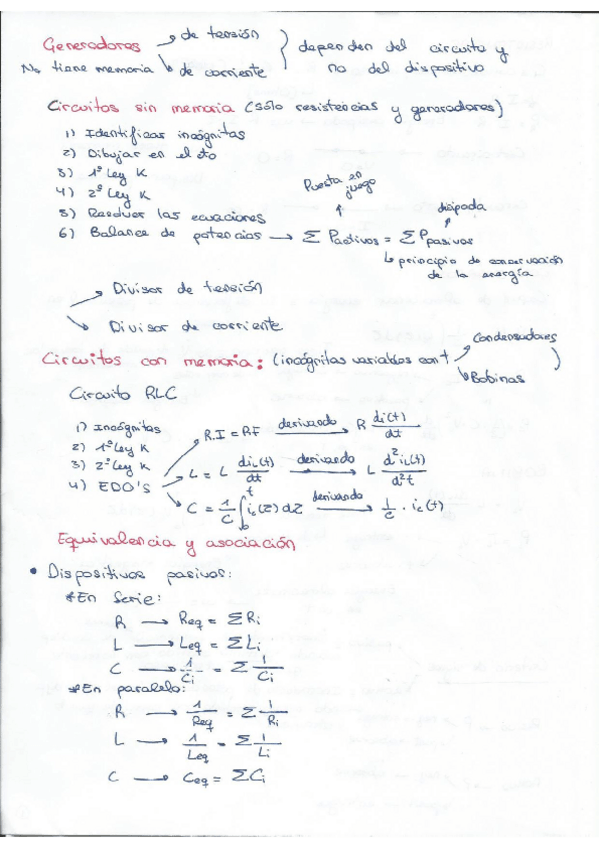 Generadores → de tensión } dependen del circuito y
No tiene memoria → de corriente } no del dispositivo
Circuitos sin memoria (sólo resistencias y generadores)
1) Identificar incógnitas
2) Dibujar en el cto
3) 1º Ley K
4) 2º Ley K
5) Resolver las ecuaciones
Puesta en juego
disipada
6) Balance de potencias → Σ Pactivos = Σ Ppasivos
↳ principio de conservación
de la energía
→ Divisor de tensión
→ Divisor de corriente
Circuitos con memoria: (incógnitas variables con t → Condensadores
→ Bobinas )
Circuito RLC
1) Incógnitas
2) 1º Ley K
3) 2º Ley K
4) EDO'S
R·I = R·I derivando → R di(t)/dt
L = L diL(t)/dt derivando → L d²iL(t)/d²t
C = 1/C ∫₀ᵗ ic(τ) dτ derivando → 1/C · ic(t)
Equivalencia y asociación
• Dispositivos pasivos:
*En Serie:
R → Req = ΣRi
L → Leq = ΣLi
C → 1/Ci = Σ 1/Ci
*En paralelo:
R → 1/Req = Σ 1/Ri
L → 1/Leq = Σ 1/Li
C → Ceq = ΣCi